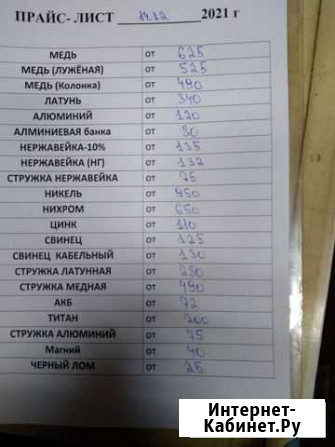 ПРАЙС- ЛИСТ 14.12 2021 г
МЕДЬ от 625
МЕДЬ (ЛУЖЁНАЯ) от 525
МЕДЬ (Колонка) от 490
ЛАТУНЬ от 340
АЛЮМИНИЙ от 120
АЛМИНИЕВАЯ банка от 80
НЕРЖАВЕЙКА-10% от 135
НЕРЖАВЕЙКА (НГ) от 132
СТРУЖКА НЕРЖАВЕЙКА от 75
НИКЕЛЬ от 950
НИХРОМ от 650
ЦИНК от 110
СВИНЕЦ от 125
СВИНЕЦ КАБЕЛЬНЫЙ от 130
СТРУЖКА ЛАТУННАЯ от 280
СТРУЖКА МЕДНАЯ от 490
АКБ от 72
ТИТАН от 200
СТРУЖКА АЛЮМИНИЙ от 75
Магний от 40
ЧЕРНЫЙ ЛОМ от 25
Интернет-
Кабинет.Ру